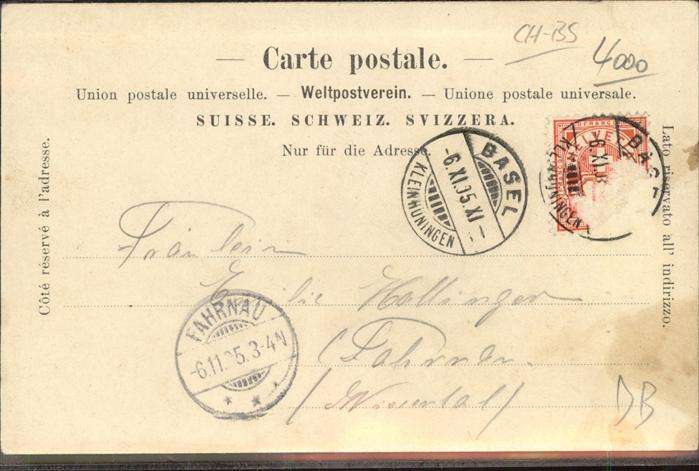 CH-BS
4000
— Carte postale. —
Union postale universelle. — Weltpostverein. — Unione postale universale.
SUISSE. SCHWEIZ. SVIZZERA.
Nur für die Adresse.
Côté réservé à l'adresse.
Lato riservato all' indirizzo.
BASEL
-6.XI.05.XI-
KLEINHÜNINGEN
BAS
6.XI.
KLEINHÜNINGEN
HELVE
Fräulein
Emilie Hollinger
Fahrnau
(Wiesental)
FAHRNAU
-6.11.05.3-4N
DB